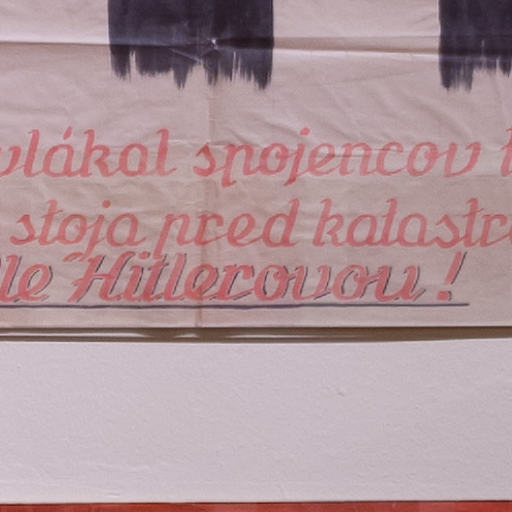 vlákal spojencov
stoja pred katastro
le Hitlerovou!